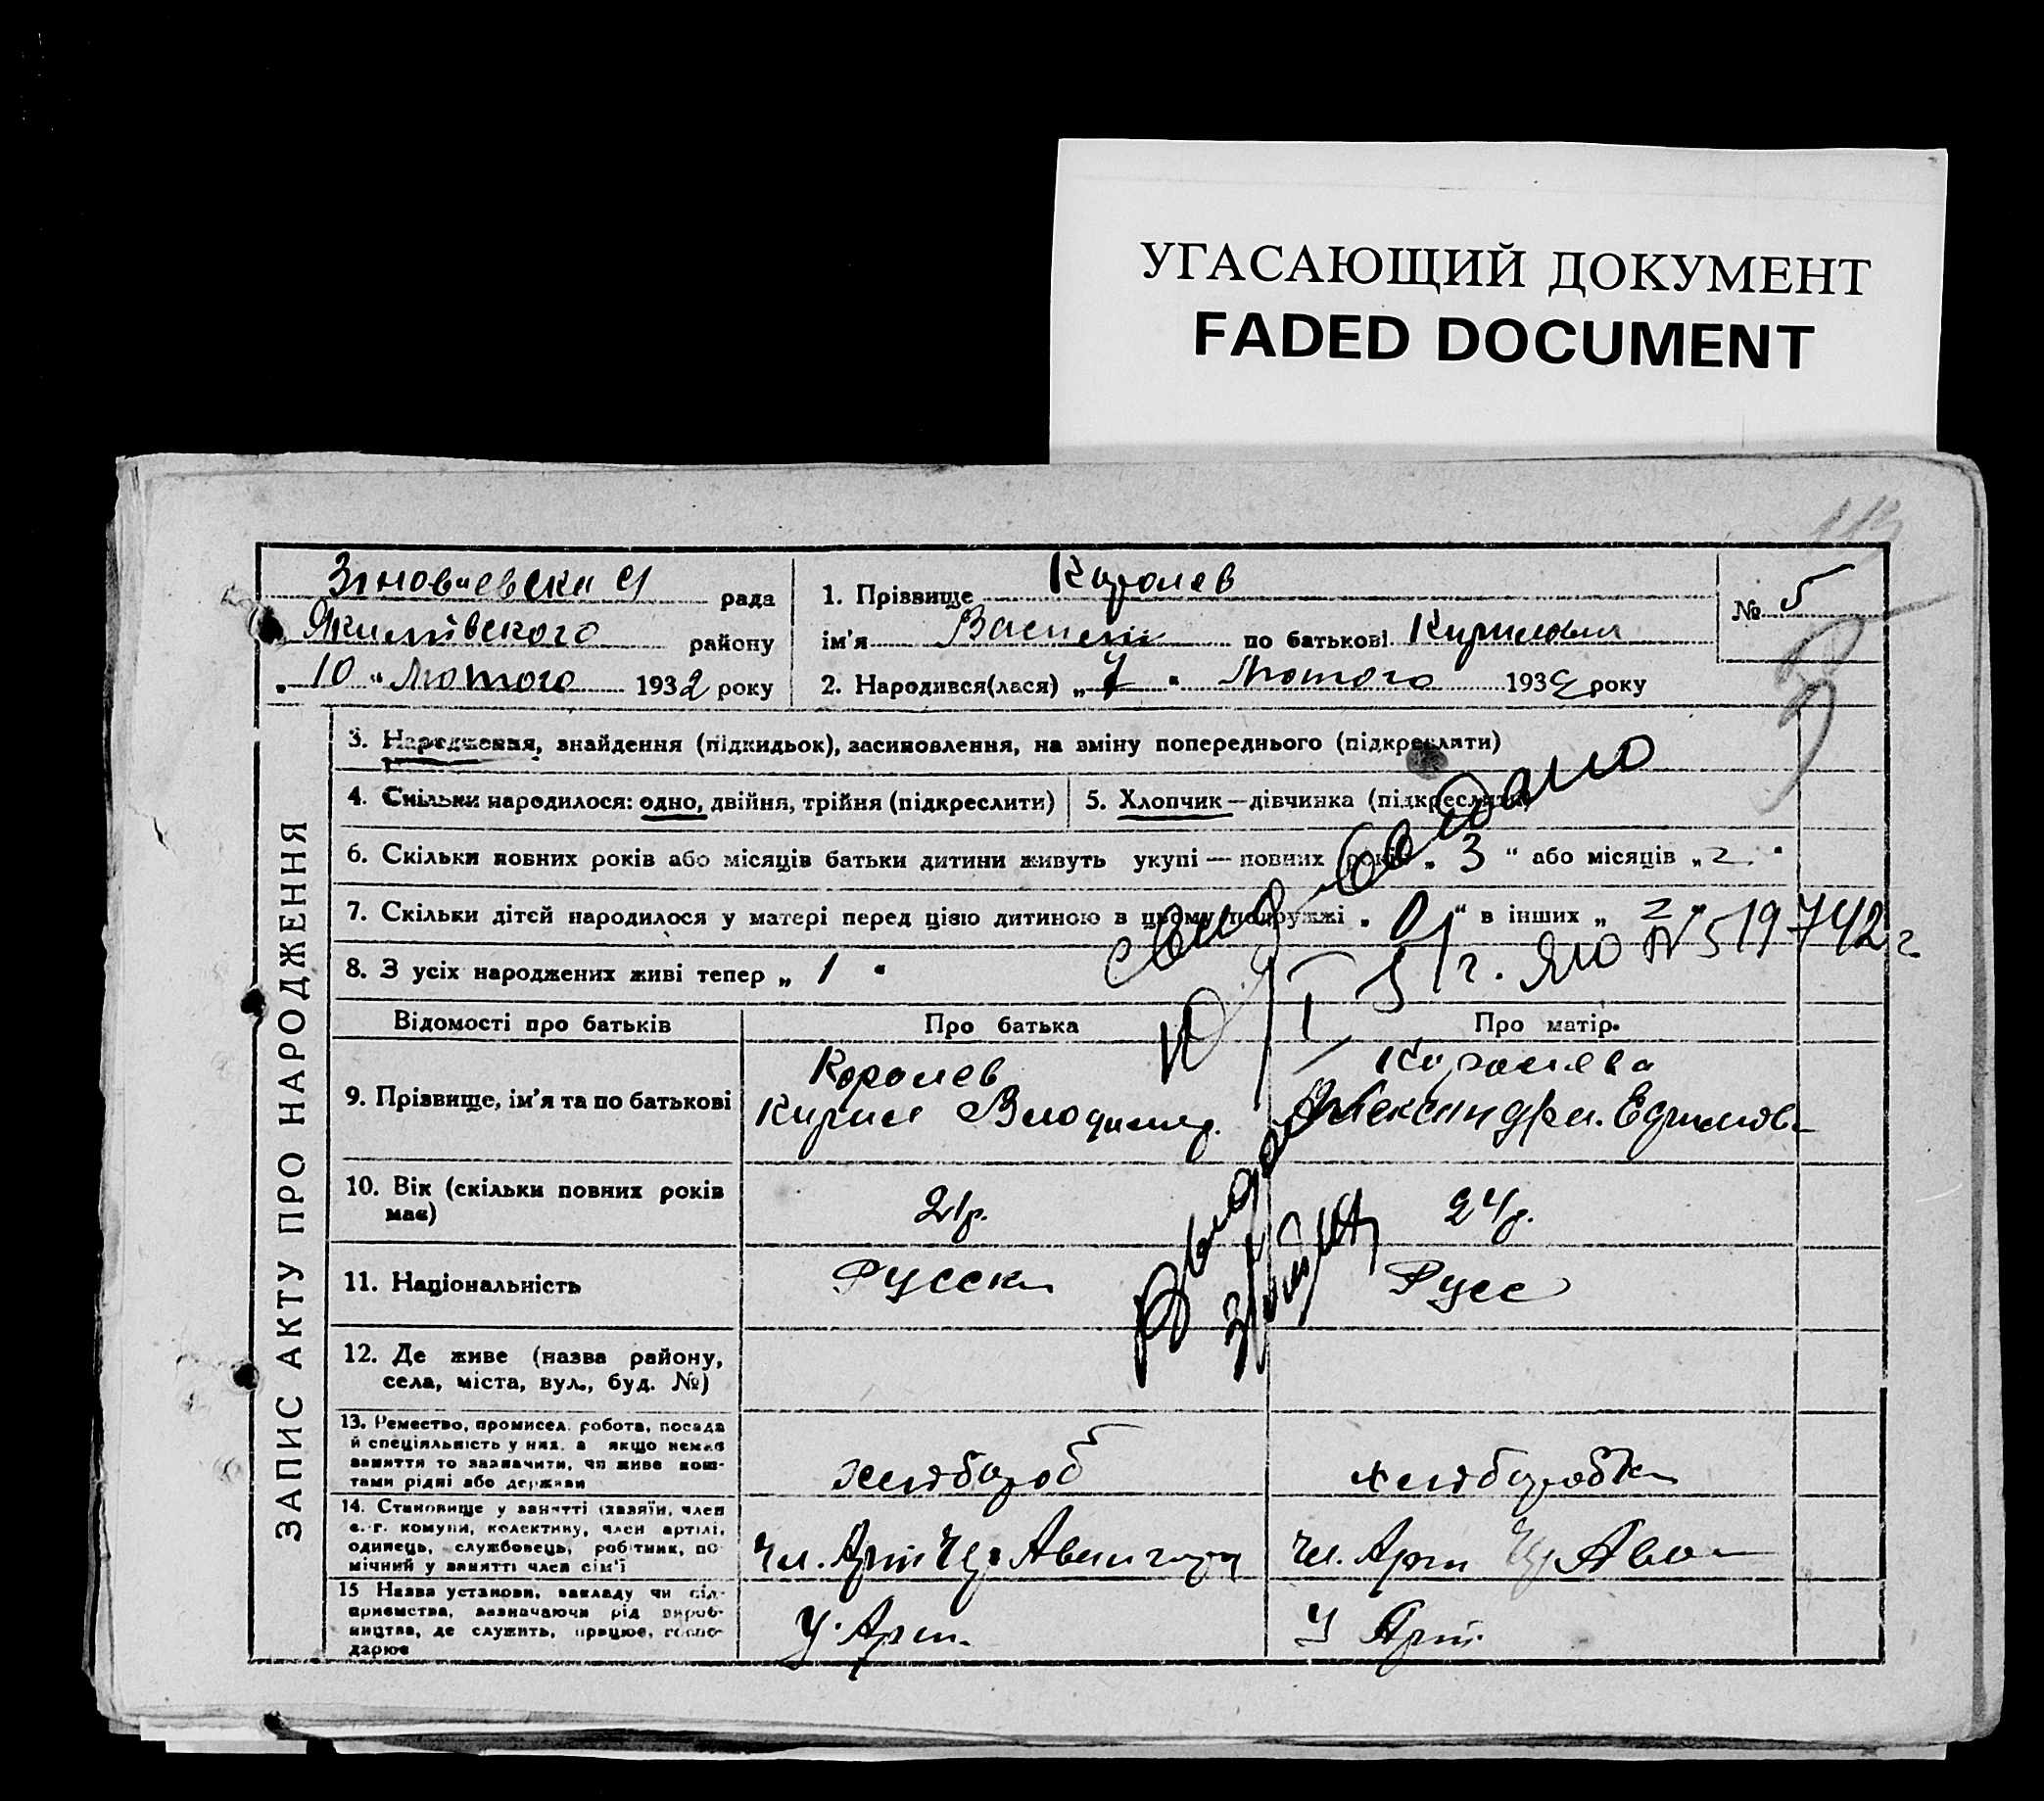 УГАСАЮЩИЙ ДОКУМЕНТ
FADED DOCUMENT
рада
района
району
„10“ Лютого 1932 року
1. Прізвище Королев
ім'я Василий по батькові Кирилович
2. Народився(лася) „7“ Лютого 1932 року
№ 5
ЗАПИС АКТУ ПРО НАРОДЖЕННЯ
3. Народження, знайдення (підкидьок), засиновлення, на зміну попереднього (підкреслити)
4. Скільки народилося: одно, двійня, трійня (підкреслити)
5. Хлопчик—дівчинка (підкреслити)
6. Скільки повних років або місяців батьки дитини живуть укупі — повних років „3“ або місяців „2“
7. Скільки дітей народилося у матері перед цією дитиною в цьому подружжі „0“ в інших „2“
8. З усіх народжених живі тепер „1“
ЯЮ № 519742
Відомості про батьків
Про батька
Про матір.
9. Прізвище, ім'я та по батькові
Королев
Кирил Володимир.
Королева
Александра Ефимов
10. Вік (скільки повних років
має)
21р.
24р.
11. Національність
Русск
Русс
12. Де живе (назва району,
села, міста, вул., буд. №)
13. Ремество, промисел, робота, посада
й спеціяльність у них, а якщо немає
заняття то зазначити, чи живе кош-
тами рідні або держави
хлібороб
хліборобка
14. Становище у занятті (хазяїн, член
с.-г. комуни, колективу, член артілі,
одинець, службовець, робітник, по-
мічний у занятті член сім'ї
Чл. Арт
Чл. Арт
15 Назва установи, закладу чи під-
приємства, зазначаючи рід вироб-
ництва, де служить, працює, госпо-
дарює
У Арт.
У Арт.